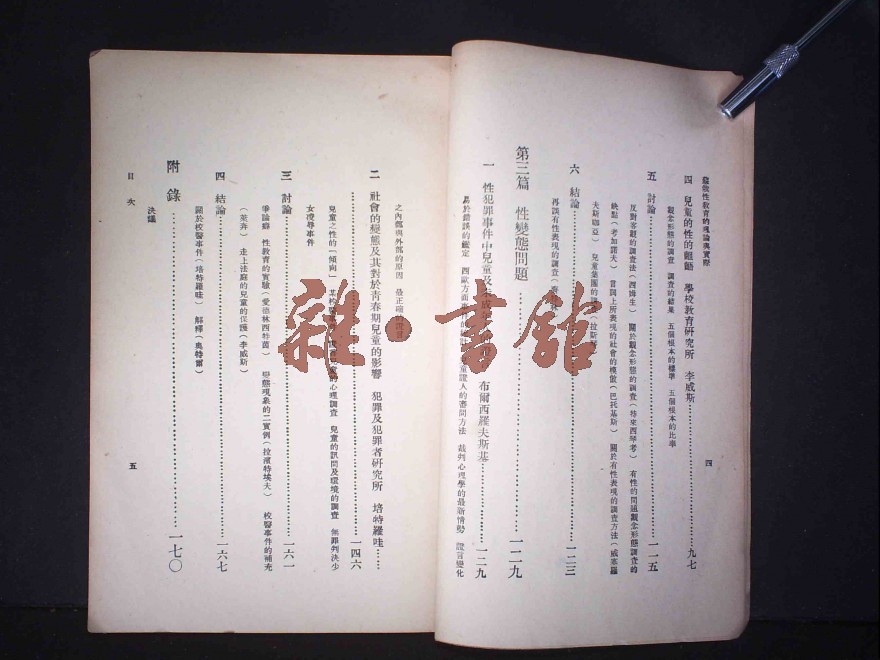 蘇俄性教育的理論與實際
四 兒童的性的體驗 學校教育研究所 李威斯……九七
觀念形態的調查 調查的結果 五個根本的標準 五個根本的比率
五 討論……一一五
反對客觀的調查法(西姆生) 關於觀念形態的調查(格來西琴考) 有性的問題觀念形態調查的
缺點(考如羅夫) 言詞上所表現的社會的模倣(巴托基斯) 關於有性表現的調查方法(威塞羅
夫斯珈亞) 兒童集團的調查(拉斯
六 結論……一二三
再談有性表現的調查
第三篇 性變態問題……一二九
一 性犯罪事件中兒童及未成年 布爾西羅夫斯基……一二九
易於錯誤的鑑定 西歐方面 童證人的審問方法 裁判心理學的最新情勢 證言變化
四
之內部與外部的原因 最正確的證言
二 社會的變態及其對於青春期兒童的影響 犯罪及犯罪者研究所 培特羅哇……
……一四六
兒童之性的「傾向」 某校醫事件 心理調查 兒童的訊問及環境的調查 無罪判決少
女凌辱事件
三 討論……一六一
爭論癖 性教育的實驗(愛德林西特茵) 變態現象的二實例(拉濱特埃夫) 校醫事件的補充
(萊奔) 走上法庭的兒童的保護(李威斯)
四 結論……一六七
關於校醫事件(培特羅哇) 解釋(奧特爾)
附錄……一七〇
決議
目次
五
雜·書館